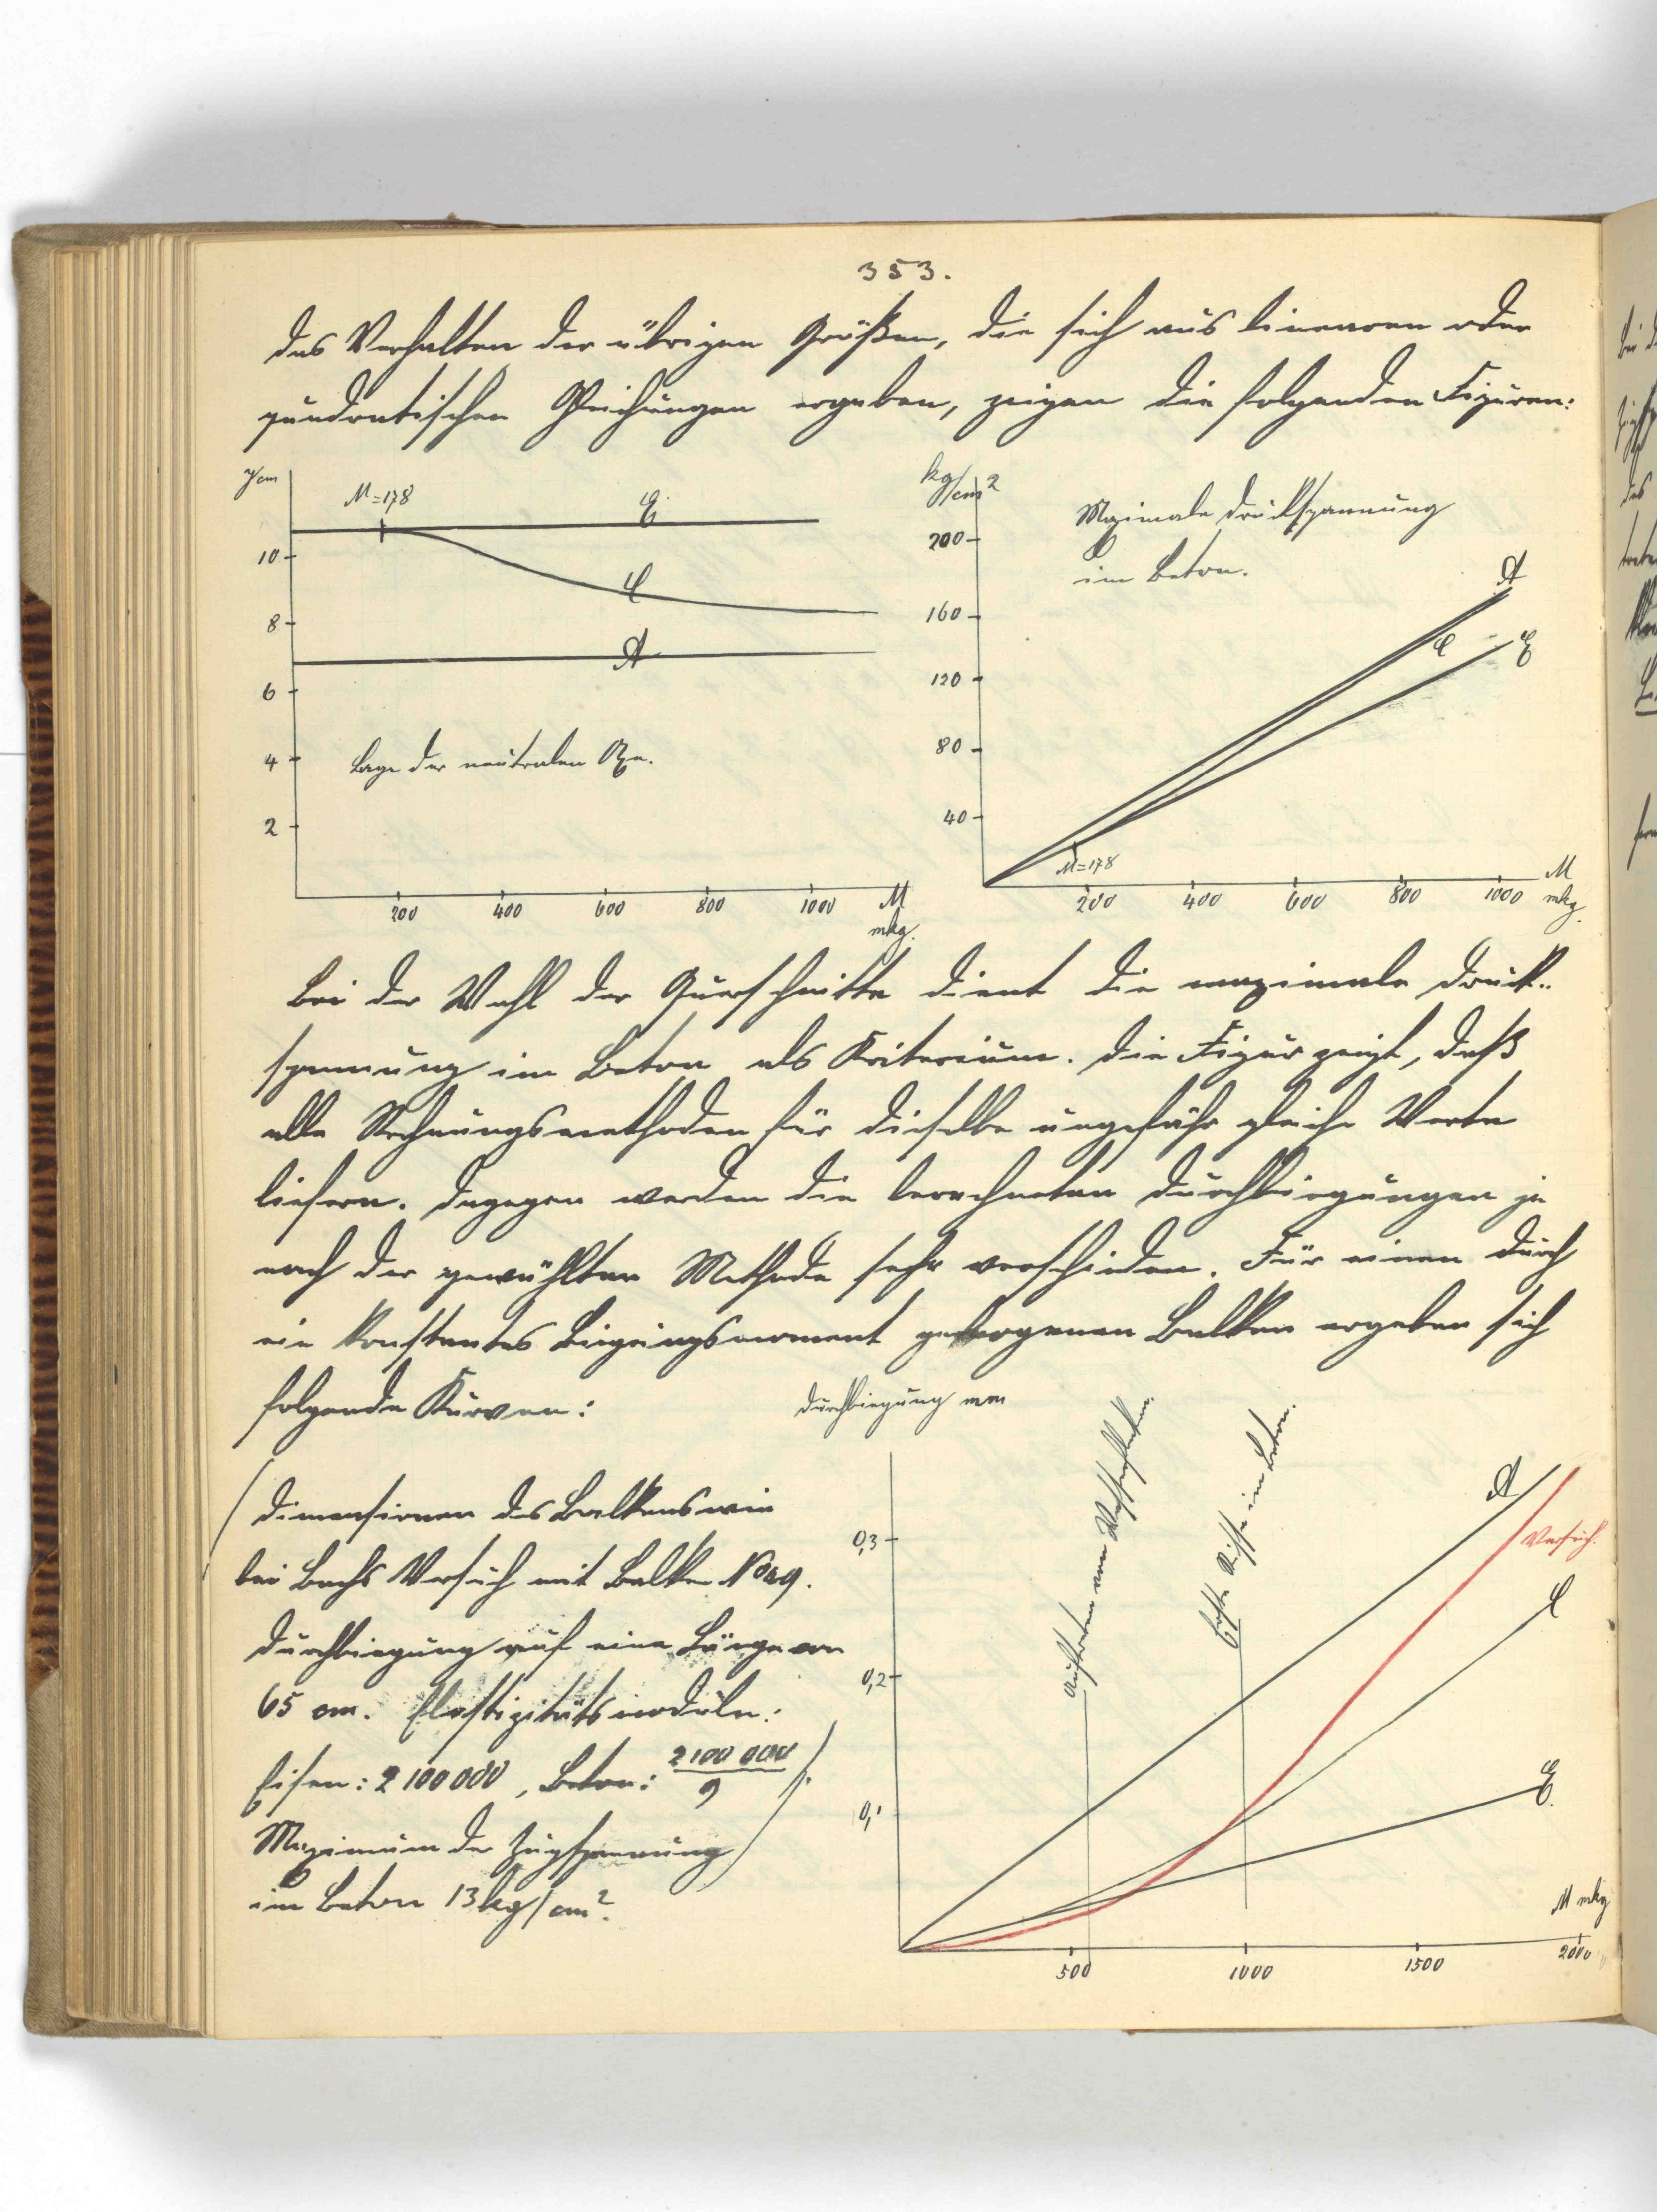 353.
das Verhalten der übrigen Größen, die sich aus linearen oder
quadratischen Gleichungen ergeben, zeigen die folgenden Figuren:
y/cm
M=178
E
C
A
10
8
6
4
2
Lage der neutralen Axe.
200 400 600 800 1000 M
mkg.
kg/cm2
Maximale Druckspannung
im Beton.
200
160
120
80
40
A
C
E
M=178
200 400 600 800 1000 M
mkg.
Bei der Wahl der Querschnitte dient die maximale Druck-
spannung im Beton als Kriterium. Die Figur zeigt, daß
alle Rechnungsmethoden für dieselbe ungefähr gleiche Werte
liefern. Dagegen werden die berechneten Durchbiegungen je
nach der gewählten Methode sehr verschieden. Für einen durch
ein konstantes Biegungsmoment gebogenen Balken ergeben sich
folgende Kurven:
(Dimensionen des Balkens wie
bei Bachs Versuch mit Balken No 29.
Durchbiegung auf eine Länge von
65 cm. Elastizitätsmoduln:
Eisen: 2100000, Beton: 2100000/9).
Maximum der Zugspannung
im Beton 13 kg/cm2.
Durchbiegung mm
Auftreten von Wasserflecken.
Erste Risse im Beton.
0,3
0,2
0,1
A
Versuch.
C
E.
M mkg
500 1000 1500 2000